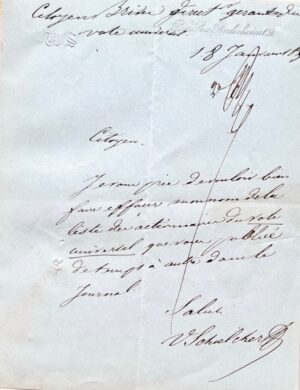 Citoyen Brives direct gerant du
vote universel
18 Janvier
Citoyen.
Je vous prie de vouloir bien
faire effacer mon nom de la
liste des actionnaires du vote
universel que vous publiez
de temps à autre dans le
Journal
Salut
V Schœlcher